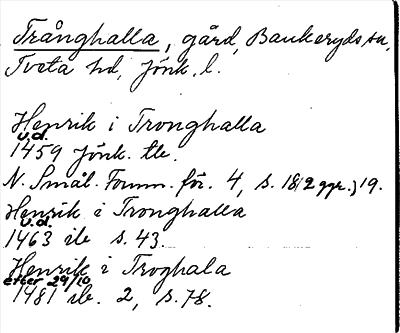 Trånghalla, gård, Bankeryds sn,
Tveta hd, Jönk. l.
Henrik i Tronghalla
u.d.
1459 Jönk. tb.
N. Smål. Fornm. för. 4, s. 18 (2 ggr.) 19.
Henrik i Tronghalla
u.d.
1463 ib s. 43.
Henrik i Troghala
efter 29/10
1481 ib. 2, s. 78.